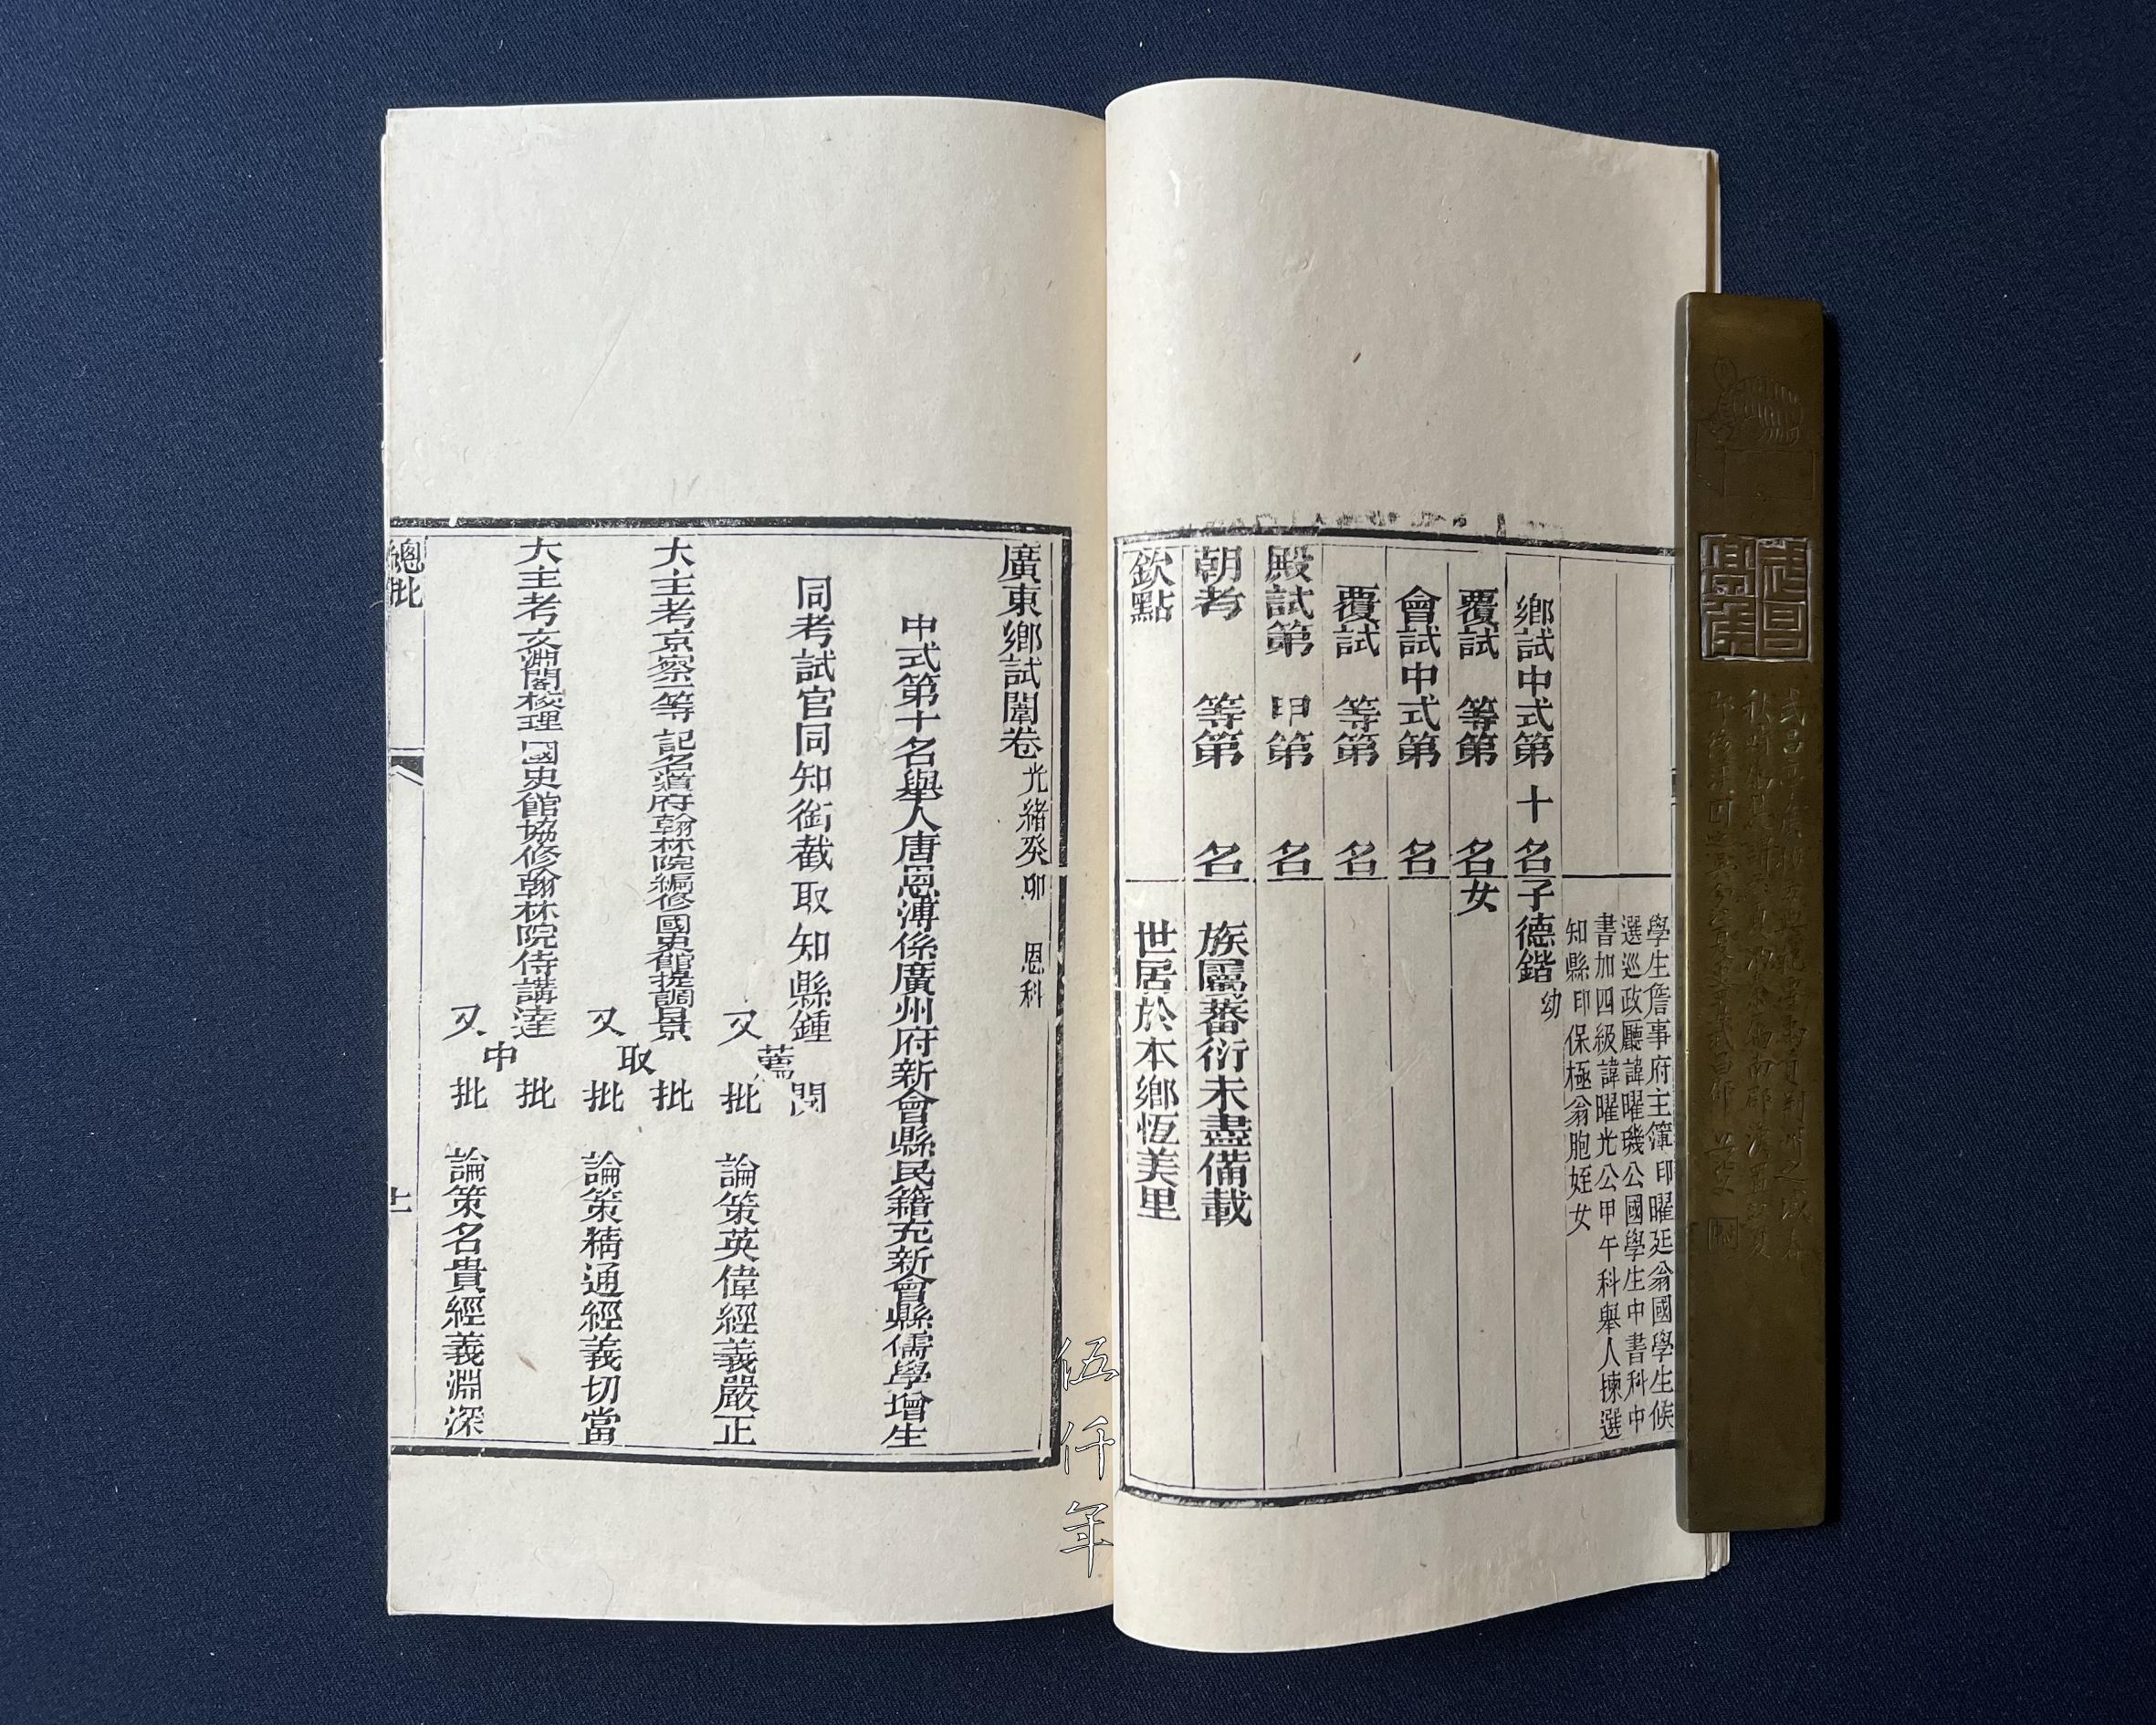 學生詹事府主簿印曜廷翁國學生候
選巡政廳諱曜璣公國學生中書科中
書加四級諱曜光公甲午科舉人揀選
知縣印保極翁胞姪女
鄉試中式第十名子德鍇幼
覆試 等第 名女
會試中式第 名
覆試 等第 名
殿試第 甲第 名
朝考 等第 名 族屬蕃衍未盡備載
欽點 世居於本鄉恆美里
廣東鄉試闈卷光緒癸卯 恩科
中式第十名舉人唐恩溥係廣州府新會縣民籍充新會縣儒學增生
同考試官同知銜截取知縣鍾 閱
薦
又 批 論策英偉經義嚴正
大主考京察一等記名道府翰林院編修國史館提調景 批
取
又 批 論策精通經義切當
大主考文淵閣校理國史館協修翰林院侍講達 批
中
又 批 論策名貴經義淵深
總批
伍仟年